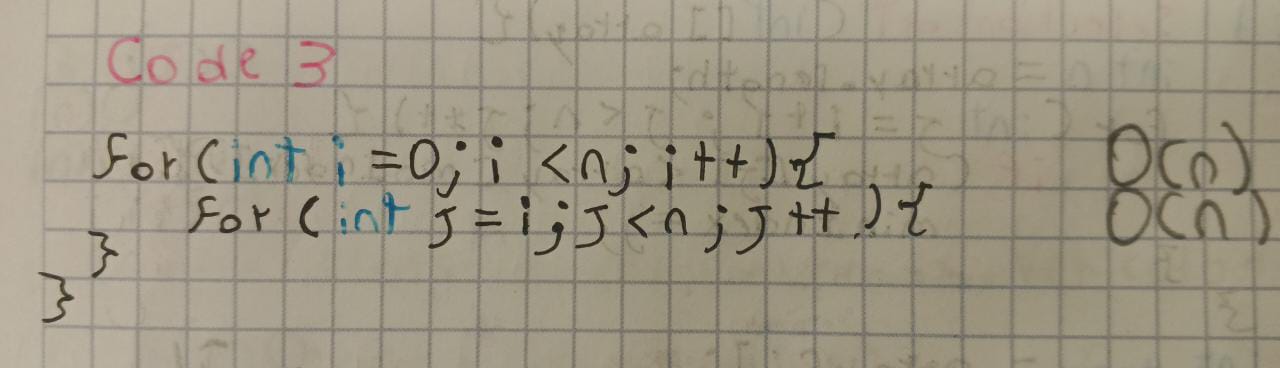 Code 3
for (int i = 0; i < n; i++) { O(n)
for (int j = i; j < n; j++) { O(n)
}
}